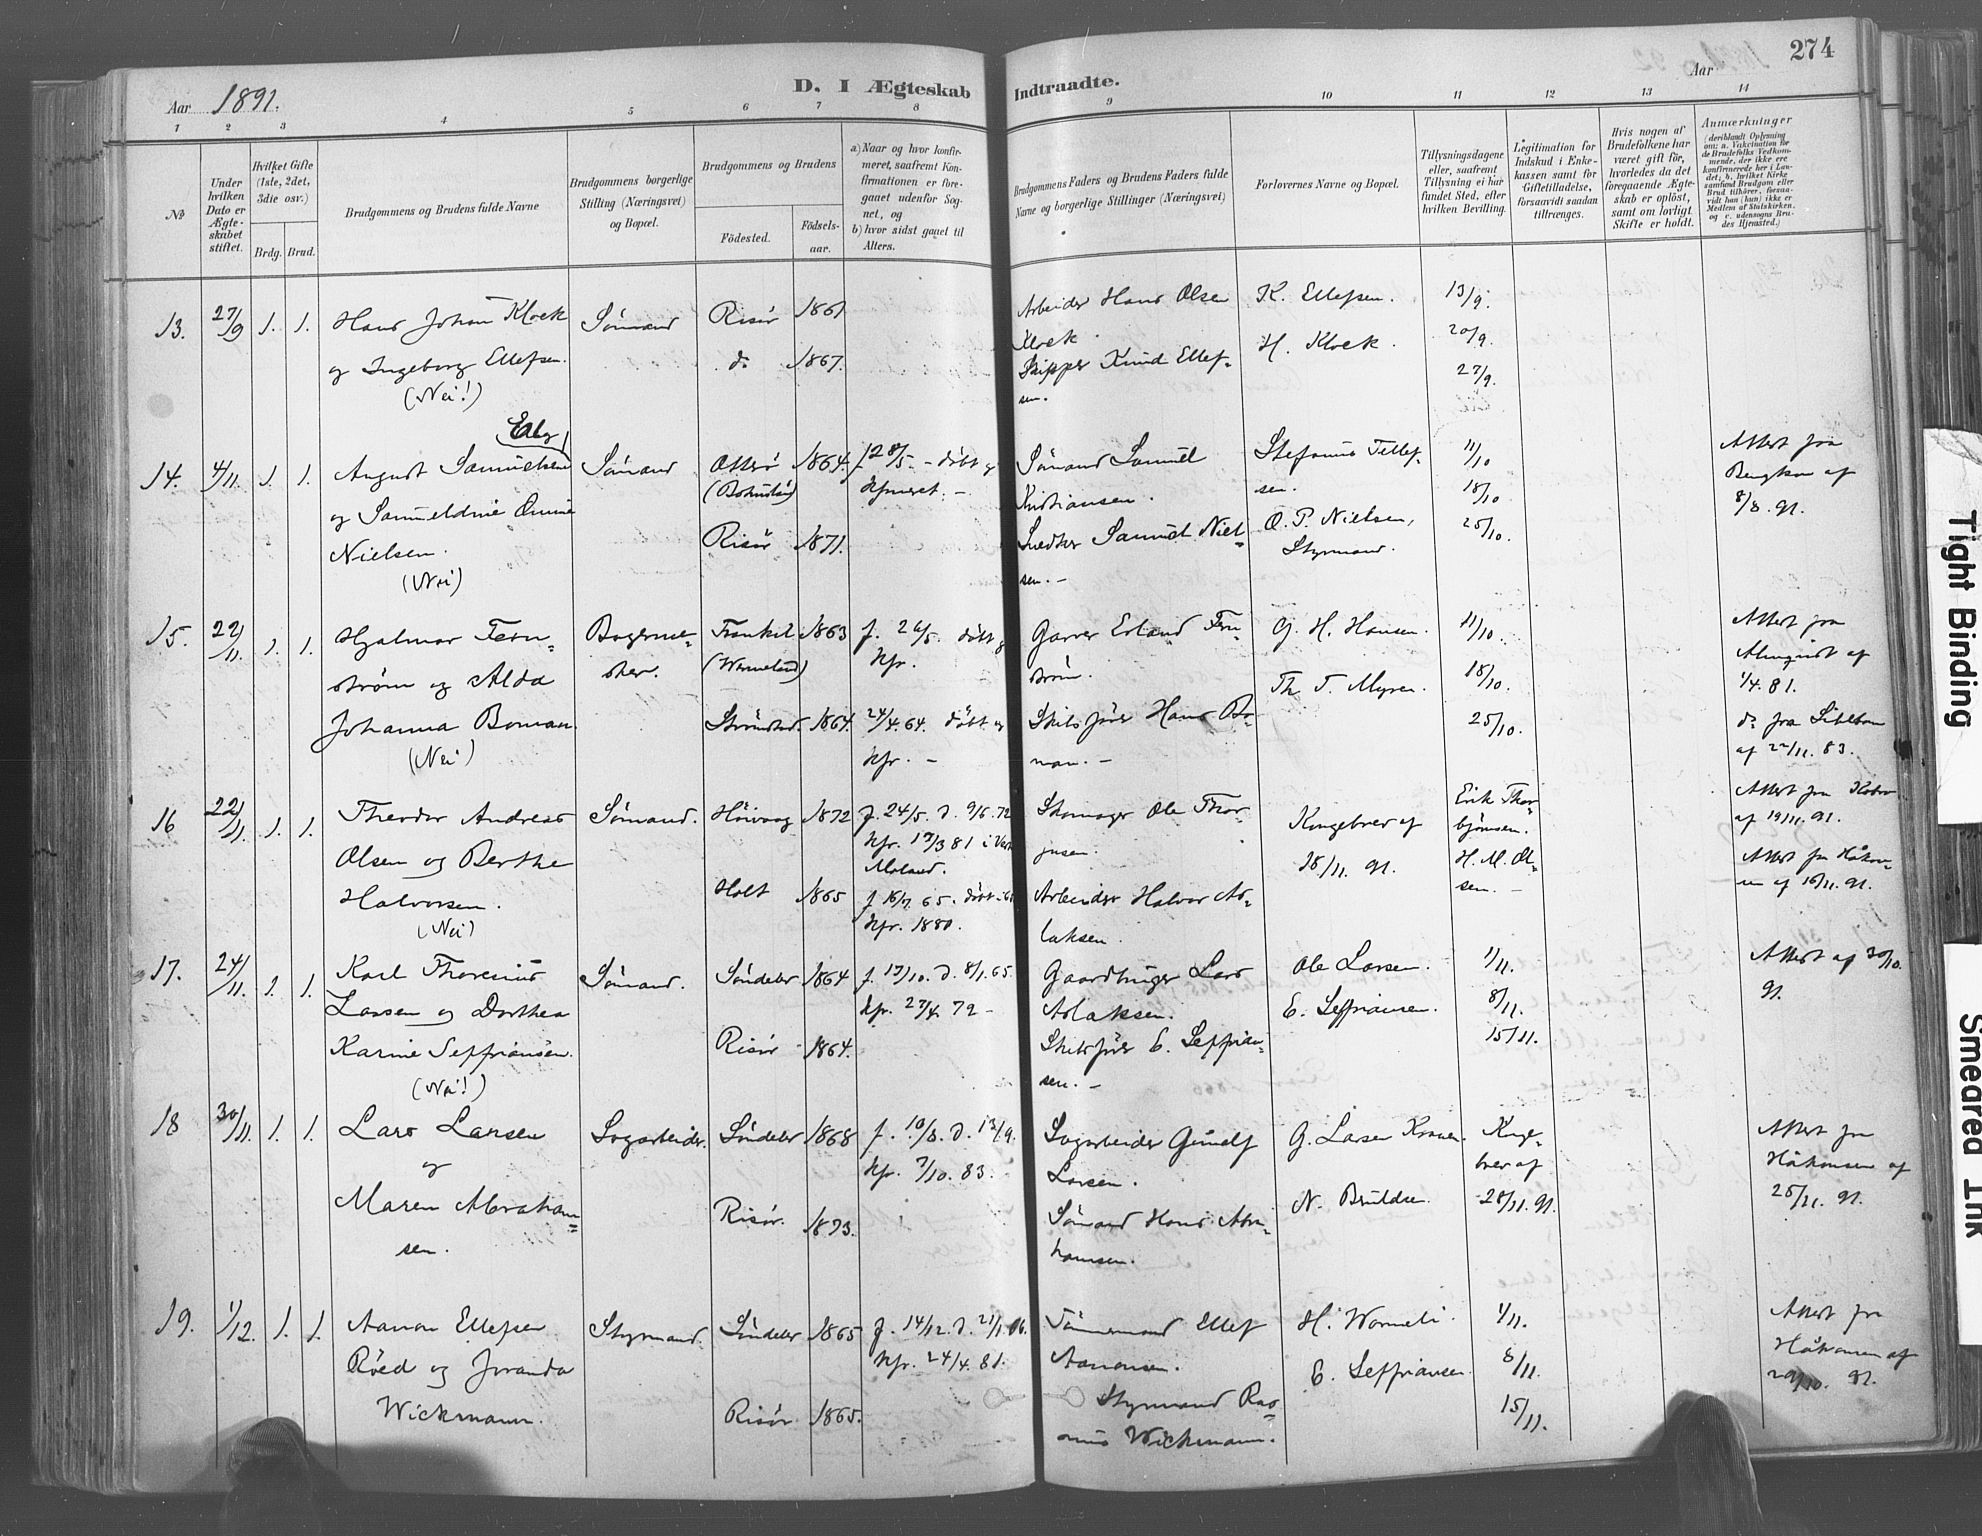 274
Aar 1891.
D. I Ægteskab Indtraadte.
Aar
1 2 3 4 5 6 7 8 9 10 11 12 13 14
No
Under hvilken Dato er Ægteskabet stiftet.
Hvilket Gifte (1ste, 2det, 3die osv.)
Brdg. Brud.
Brudgommens og Brudens fulde Navne
Brudgommens borgerlige Stilling (Næringsvei) og Bopæl.
Brudgommens og Brudens
Födested.
Födselsaar.
a) Naar og hvor konfirmeret, saafremt Konfirmationen er foregaaet udenfor Sognet, og
b) hvor sidst gaaet til Alters.
Brudgommens Faders og Brudens Faders fulde Navne og borgerlige Stillinger (Næringsvei)
Forlovernes Navne og Bopæl.
Tillysningsdagene eller, saafremt Tillysning ei har fundet Sted, efter hvilken Bevilling.
Legitimation for Indskud i Enkekassen samt for Giftetilladelse, forsaavidt saadan tiltrænges.
Hvis nogen af Brudefolkene har været gift för, hvorledes da det foregaaende Ægteskab er oplöst, samt om lovligt Skifte er holdt.
Anmærkninger
(deriblandt Oplysning om: a. Vakcination for de Brudefolks Vedkommende, der ikke ere konfirmerede her i Landet; b. hvilket Kirkesamfund Brudgom eller Brud tilhörer, forsaavidt han (hun) ikke er Medlem af Statskirken, og c. udensogns Brudes Hjemsted.)
13. 27/9 1. 1. Hans Johan Klock Sömand Risör 1861 Arbeider Hans Olsen K. Ellefsen. 13/9.
Klock H. Klock. 20/9.
og Ingeborg Ellefsen. do 1867. Skipper Knud Ellefsen. 27/9.
(Nei!)
14. 4/11. 1. 1. August Samuelsen Sömand 1864. f. 28/5. - döbt og Sömand Samuel Stefanus Tellefsen. 11/10 Attest fra
(Bohuslän) Kristiansen. 18/10 af
og Nielsen. Risör 1871. Samuel Nielsen. - O. P. Nielsen, Styrmand. 25/10. 8/8. 91.
(Nei)
15. 22/11. 1. 1. Hjalmar Fernström og Alda Bagermester. 1863 f. 26/5. döbt og Kfr. Garver Erland Fernström. G. H. Hansen. 11/10. Attest fra
(Wermeland) Th. T. Myren. 18/10. Almqvist af 1/4. 81.
Johanna Boman. Strömstad. 1864. 24/4. 64. döbt og Kfr. - Skibsförer Hans Boman. - 25/10. do fra
(Nei) af 22/11. 83.
16 22/11. 1. 1. Theodor Andreas Sömand. Höivaag 1872 f. 24/5. D. 9/6. 72 Skomager Ole Kongebrev af Erik Thorbjörnsen. Attest fra
Olsen og Berthe Kfr. 81 i Moland. 18/11. 91. H. M. Olsen. - af 19/11. 91.
Halvorsen. Holt 1865 f. 16/7. 65. Arbeider Halvor Aslaksen. Attest fra Håkonsen af 16/11. 91.
(Nei) Kfr. 1880.
17. 24/11. 1. 1. Karl Thoresius Sömand. Söndeler 1864 f. 13/10. D. 8/1. 65. Gaardbruger Lars Ole Larsen. 1/11. Attest af 30/10.
Larsen og Dorthea Kfr. 27/4. 79 - Aslaksen. E. Seffriansen. 8/11. 91.
Karine Seffriansen. Risör 1864. Skibsförer E. Seffriansen. - 15/11.
(Nei!)
18 30/11. 1. 1. Lars Larsen Sagarbeider. Söndeler 1868 f. 10/8. D. 13/9. Sagarbeider G. Larsen Kongebrev af Attest fra
og Kfr. 7/10. 83. Larsen. Håkonsen af
Maren Abrahamsen. Risör. 1873. Sömand Hans Abrahamsen. N. 28/11. 91. 25/11. 91.
19. 1/12. 1. 1. Aanon Ellefsen Styrmand. Söndeler 1865 f. 14/12. D. 21/1. 66. Tömmermand Ellef H. 1/11. Attest fra
Röed og Joranda Kfr. 24/4. 81. Aanonsen. E. Seffriansen. 8/11. Håkonsen af
Wickmann. Risör 1865. Styrmand Rasmus Wickmann. 15/11. 29/10. 91.
Tight Binding
Smeared Ink